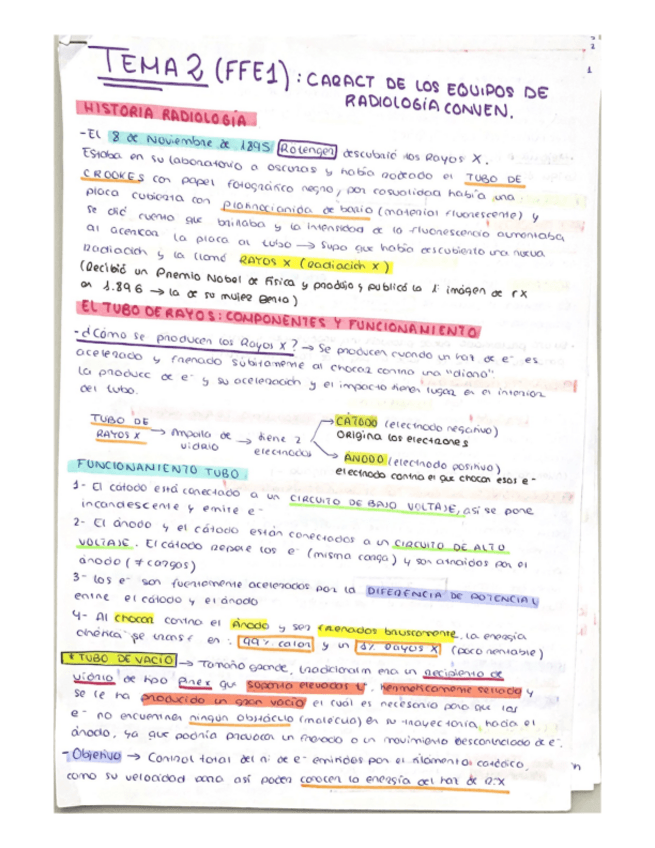 TEMA 2 (FFE1): CARACT DE LOS EQUIPOS DE
RADIOLOGÍA CONVEN.
HISTORIA RADIOLOGÍA.
-El 8 de Noviembre de 1895 descubrió los Rayos X.
Estaba en su laboratorio a oscuras y había rodeado el TUBO DE
CROOKES con papel fotográfico negro, por casualidad había una
placa cubierta con platinocianida de bario (material fluorescente) y
se dió cuenta que brillaba y la intensidad de la fluorescencia aumentaba
al acercar la placa al tubo → Supo que había descubierto una nueva
radiación y la llamó RAYOS X (Radiación X)
(Recibió un Premio Nobel de Física y produjo y publicó la 1ª imagen de rx
en 1.896 → la de su mujer Berta)
EL TUBO DE RAYOS: COMPONENTES Y FUNCIONAMIENTO
-¿Cómo se producen los Rayos X? → Se producen cuando un haz de e⁻ es
acelerado y frenado súbitamente al chocar contra una "diana"
la producc de e⁻ y su aceleración y el impacto tienen lugar en el interior
del tubo.
TUBO DE RAYOS X → Ampolla de vidrio → tiene 2 electrodos
→ CÁTODO (electrodo negativo)
origina los electrones
→ ÁNODO (electrodo positivo)
electrodo contra el que chocan esos e⁻
FUNCIONAMIENTO TUBO.
1- El cátodo está conectado a un CIRCUITO DE BAJO VOLTAJE, así se pone
incandescente y emite e⁻
2- El ánodo y el cátodo están conectados a un CIRCUITO DE ALTO
VOLTAJE. El cátodo repele los e⁻ (misma carga) y son atraídos por el
ánodo (≠ cargas)
3- los e⁻ son fuertemente acelerados por la DIFERENCIA DE POTENCIAL
entre el cátodo y el ánodo
4- Al chocar contra el Ánodo y ser frenados bruscamente, la energía
cinética se transf en: 99% calor y un 1% RAYOS X (poco rentable)
* TUBO DE VACÍO → Tamaño grande, tradicionalm era un recipiente de
vidrio de tipo Pirex que soporta elevadas tª, herméticamente sellado y
se le ha producido un gran vacío el cuál es necesario para que los
e⁻ no encuentren ningún obstáculo (molécula) en su trayectoria, hacia el
ánodo, ya que podría provocar un frenado o un movimiento descontrolado de e⁻.
- Objetivo → Control total del nº de e⁻ emitidos por el filamento catódico,
como su velocidad para así poder conocer la energía del haz de RX